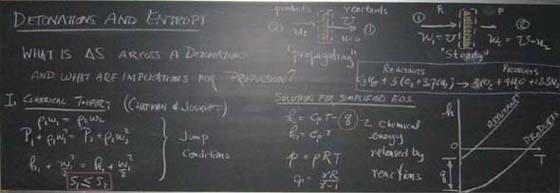 DETONATIONS AND ENTROPY
WHAT IS ΔS ACROSS A DETONATION
AND WHAT ARE IMPLICATIONS FOR PROPULSION?
products reactants
② u₂ v u=0 ①
"propagating"
① R P ②
w₁ = v w₂ = v-u₂
"Steady"
REACTANTS PRODUCTS
I. CLASSICAL THEORY (CHAPMAN & JOUGUET)
ρ₁w₁ = ρ₂w₂
P₁ + ρ₁w₁² = P₂ + ρ₂w₂²
h₁ + w₁²/2 = h₂ + w₂²/2
S₁ ≤ S₂
Jump
Conditions
SOLUTION FOR SIMPLIFIED EOS
chemical
energy
released by
reactions
p = ρRT
h
REACTANTS
PRODUCTS
T